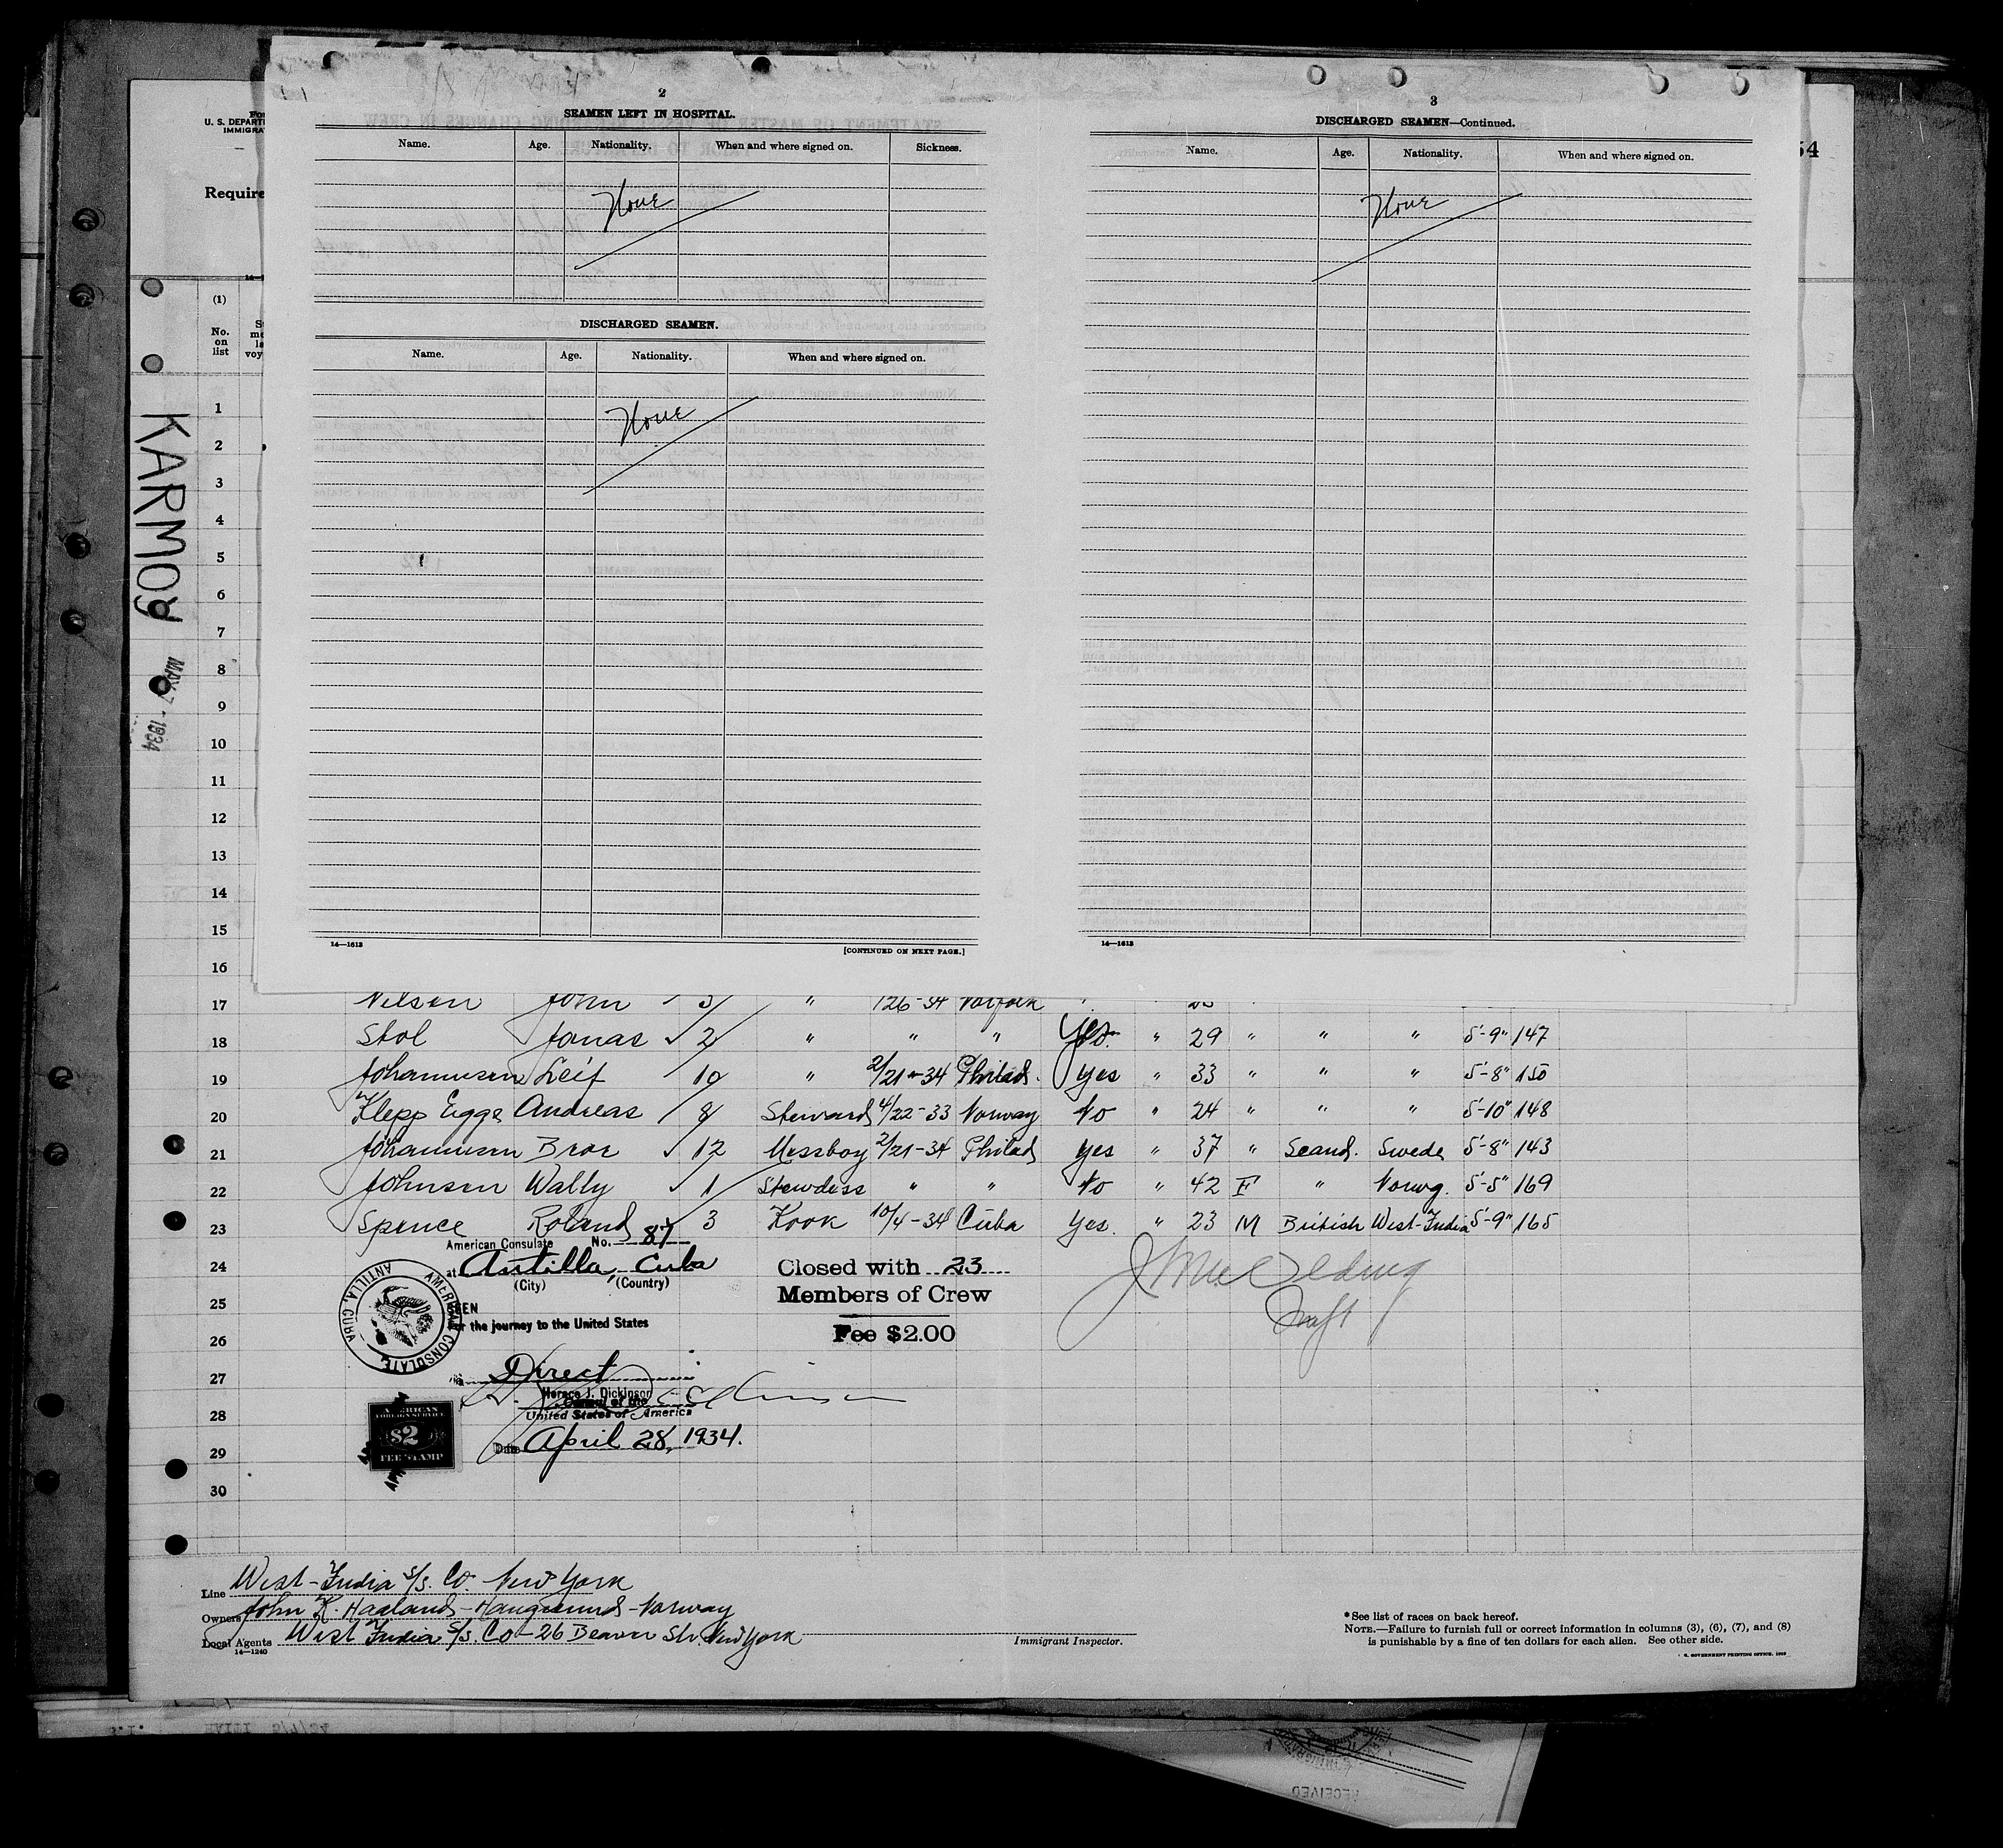 2
SEAMEN LEFT IN HOSPITAL.
Name. Age. Nationality. When and where signed on. Sickness.
None
DISCHARGED SEAMEN.
Name. Age. Nationality. When and where signed on.
None
14—1613
[CONTINUED ON NEXT PAGE.]
3
DISCHARGED SEAMEN—Continued.
Name. Age. Nationality. When and where signed on.
None
14—1613
54
U. S. DEPART
IMMIGRA
Require
(1)
No.
on
list
KARMOY
MAY 7 - 1934
1
2
3
4
5
6
7
8
9
10
11
12
13
14
15
16
17 Nilsen John 3 " 126-34 Norfolk
18 Stol Jonas 2 " " " Yes " 29 " " " 5'-9" 147
19 Johannesen Leif 10 " 2/21-34 Philad. Yes " 33 " " " 5'-8" 150
20 Klepp Egge Andreas 8 Steward 4/22-33 Norway No " 24 " " " 5'-10" 148
21 Johannesen Bror 12 Messboy 2/21-34 Philad Yes " 37 " Scand. Swede 5'-8" 143
22 Johnsen Wally 1 Stewdess " " No " 42 F " Norwg. 5'-5" 169
23 Spence Roland 3 Kook 10/4-34 Cuba Yes. " 23 M British West-India 5'-9" 165
24
25
26
27
28
29
30
American Consulate No. 87
at Antilla, Cuba
(City) (Country)
SEEN
For the journey to the United States
Direct
Horace J. Dickinson
Consul of the
United States of America
Date April 28, 1934.
AMERICAN CONSULATE
ANTILLA, CUBA
AMERICAN
FOREIGN SERVICE
$2
FEE STAMP
Closed with 23
Members of Crew
Fee $2.00
Line West-India S/S. Co. New York
Owners John K. Haaland-Haugesund-Norway
Local Agents West India S/S. Co-26 Beaver Str. New York
14—1240
Immigrant Inspector.
*See list of races on back hereof.
NOTE.—Failure to furnish full or correct information in columns (3), (6), (7), and (8)
is punishable by a fine of ten dollars for each alien. See other side.
GOVERNMENT PRINTING OFFICE.
HAITI 5/7/34
RECEIVED